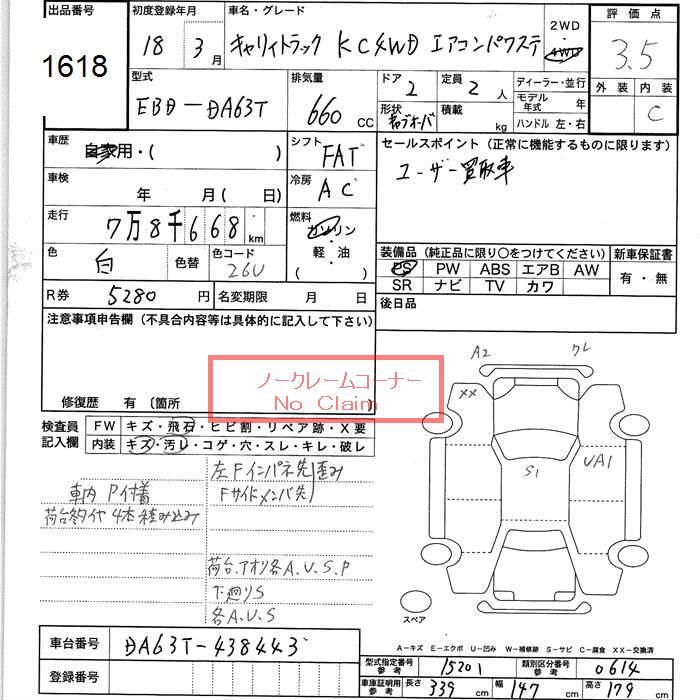 出品番号
1618
初度登録年月
18 3月
車名・グレード
キャリィトラック KC4WD エアコンパワステ
2WD
・
4WD
評価点
3.5
外装 内装
C
型式
EBD-DA63T
排気量
660 CC
ドア
2
定員
2 人
形状
積載
kg
ディーラー・並行
モデル年式 年
ハンドル 左・右
車歴
自家用・( )
シフト
FAT
セールスポイント (正常に機能するものに限ります)
ユーザー買取車
車検
年 月(日)
冷房
AC
走行
7万8千668 km
燃料
ガソリン
・
軽・油
( )
色
白
色替
色コード
26U
装備品 (純正品に限り○をつけてください)
新車保証書
PS PW ABS エアB AW
有・無
SR ナビ TV カワ
R券 5280円
名変期限 月 日
後日品
注意事項申告欄 (不具合内容等は具体的に記入して下さい)
ノークレームコーナー
No Claim
修復歴 有〔箇所
検査員記入欄
FW キズ・飛石・ヒビ割・リペア跡・X要
内装 キズ・汚れ・コゲ・穴・スレ・キレ・破レ
左Fインパネ先歪み
Fサイドメンバ先)
車内P付着
荷台冬タイヤ4本積み込み
荷台.アオリ各A.U.S.P
下廻りS
各A.U.S
A2
クレ
XX
S1
UA1
スペア
A-キズ E-エクボ U-凹み W-補修跡 S-サビ C-腐食 XX-交換済
車台番号 DA63T-438443
登録番号
型式指定番号参考 15201
類別区分番号参考 0614
車庫証明用参考 長さ 339 cm 幅 147 cm 高さ 179 cm